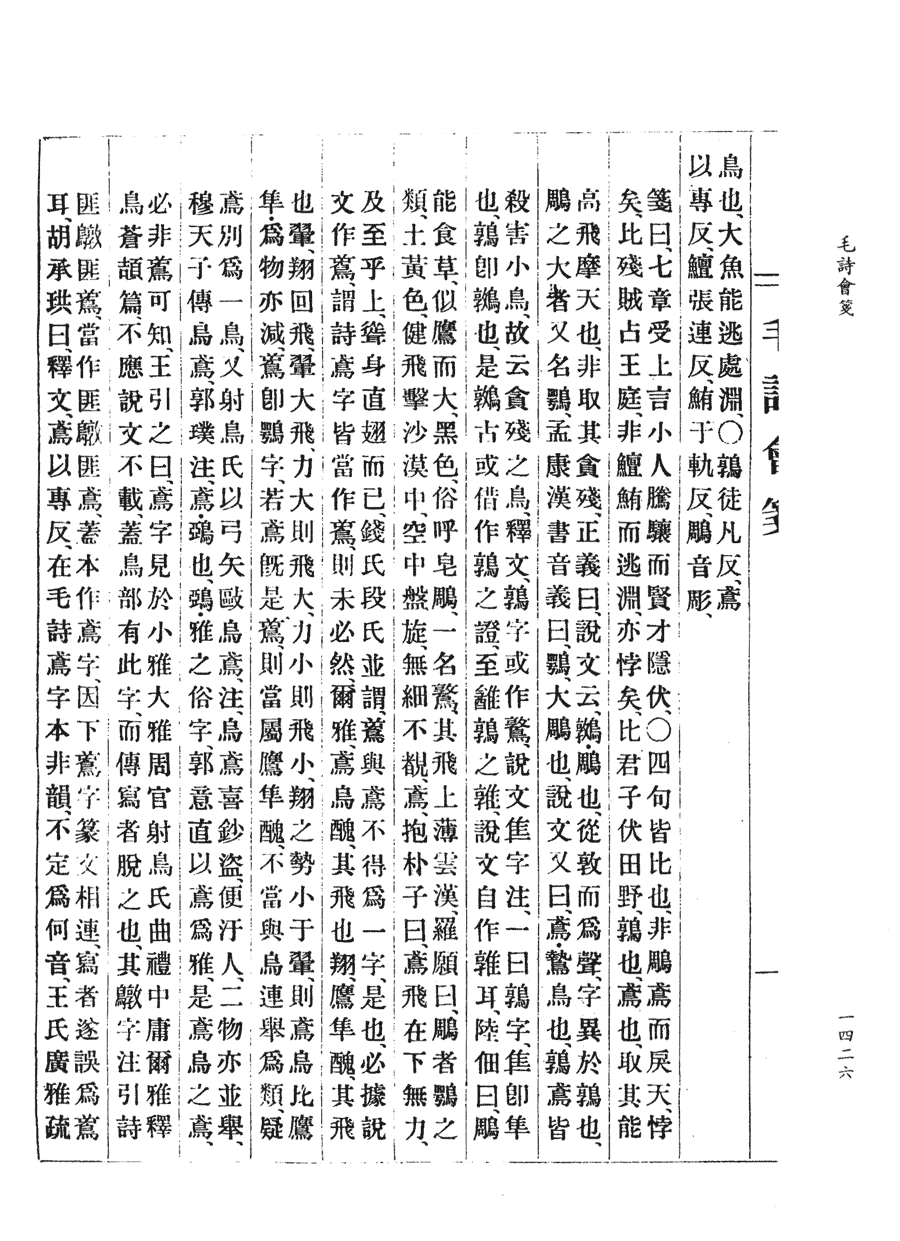 毛詩會箋
一四二六
毛詩會箋
鳥也、大魚能逃處淵、〇鶉徒凡反、鳶
以專反、鱣張連反、鮪于軌反、鵰音彫、
箋曰、七章受上言小人騰驤而賢才隱伏、〇四句皆比也、非鵰鳶而戾天、悖
矣、比殘賊占王庭、非鱣鮪而逃淵、亦悖矣、比君子伏田野、鶉也、鳶也、取其能
高飛摩天也、非取其貪殘、正義曰、說文云、鷻、鵰也、從敦而爲聲、字異於鶉也、
鵰之大者又名鶚、孟康漢書音義曰、鶚、大鵰也、說文又曰、鳶、鷙鳥也、鶉鳶皆
殺害小鳥、故云貪殘之鳥、釋文、鶉字或作鷻、說文隼字注、一曰鶉字、隼卽隼
也、鶉卽鷻也、是鷻古或借作鶉之證、至雝鶉之雜、說文自作雜耳、陸佃曰、鵰
能食草、似鷹而大、黑色、俗呼皂鵰、一名鷻、其飛上薄雲漢、羅願曰、鵰者鶚之
類、土黃色、健飛擊沙漠中、空中盤旋、無細不覩、鳶、抱朴子曰、鳶飛在下無力、
及至乎上、聳身直翅而已、錢氏段氏並謂、鳶與鳶不得爲一字、是也、必據說
文作鳶、謂詩鳶字皆當作鳶、則未必然、爾雅、鳶烏醜、其飛也翔、鷹隼醜、其飛
也翬、翔回飛、翬大飛、力大則飛大、力小則飛小、翔之勢小于翬、則鳶烏比鷹
隼、爲物亦減、鳶卽鶚字、若鳶旣是鳶、則當屬鷹隼醜、不當與烏連舉爲類、疑
鳶別爲一鳥、又射鳥氏以弓矢歐烏鳶、注、烏鳶喜鈔盜、便汙人、二物亦並舉、
穆天子傳烏鳶、郭璞注、鳶、鴟也、鴟、雅之俗字、郭意直以鳶爲雅、是鳶烏之鳶、
必非鳶可知、王引之曰、鳶字見於小雅大雅周官射鳥氏曲禮中庸爾雅釋
鳥蒼頡篇、不應說文不載、蓋鳥部有此字、而傳寫者脫之也、其䲵字注引詩
匪䲵匪鳶、當作匪䲵匪鳶、蓋本作鳶字、因下鳶字篆文相連、寫者遂誤爲鳶
耳、胡承珙曰、釋文、鳶以專反、在毛詩鳶字本非韻、不定爲何音、王氏廣雅疏